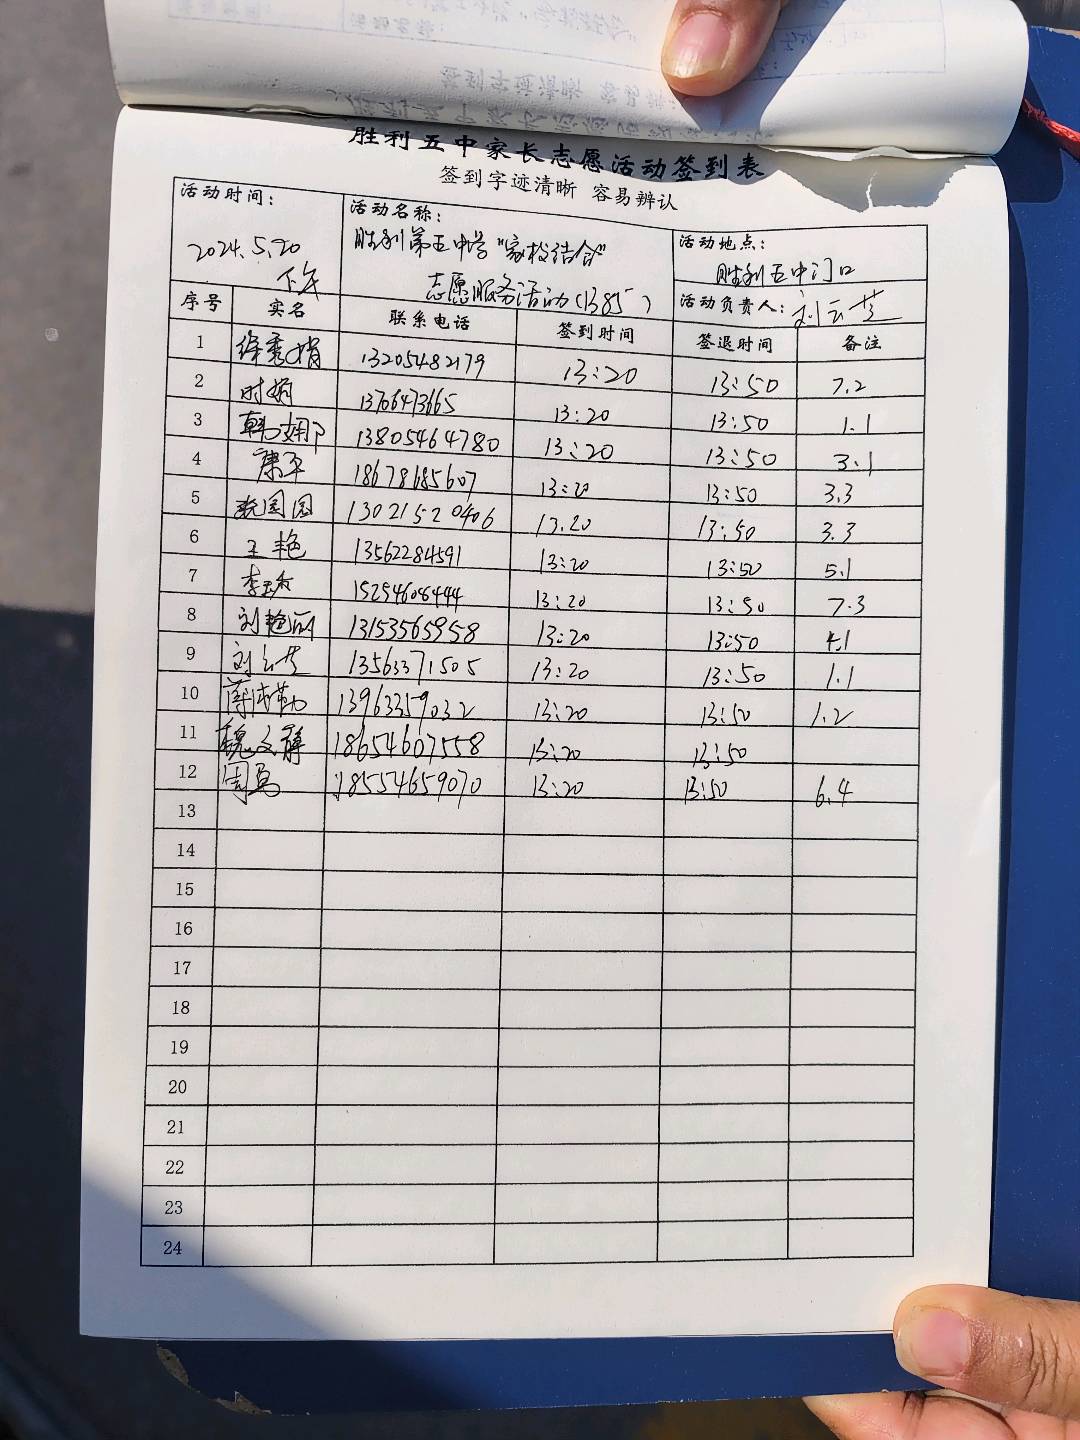 胜利五中家长志愿活动签到表
签到字迹清晰 容易辨认
活动时间: 2024.5.20 下午
活动名称: 胜利第五中学"家校结合"
志愿服务活动(1385)
活动地点: 胜利五中门口
活动负责人: 刘云芝
序号 实名 联系电话 签到时间 签退时间 备注
1 徐秀娟 13205482179 13:20 13:50 7.2
2 时娟 13706473665 13:20 13:50 1.1
3 韩娜 13805464780 13:20 13:50 3.1
4 康平 18678685607 13:20 13:50 3.3
5 张国国 13021520406 13.20 13:50 3.3
6 王艳 13562284591 13:20 13:50 5.1
7 李玉香 15254608444 13:20 13:50 7.3
8 刘艳丽 13153565958 13:20 13:50 4.1
9 刘云芝 13563371505 13:20 13:50 1.1
10 13963359032 13:20 13:50 1.2
11 魏文静 18654607558 13:20 13:50
12 周 18554659070 13:20 13:50 6.4
13
14
15
16
17
18
19
20
21
22
23
24